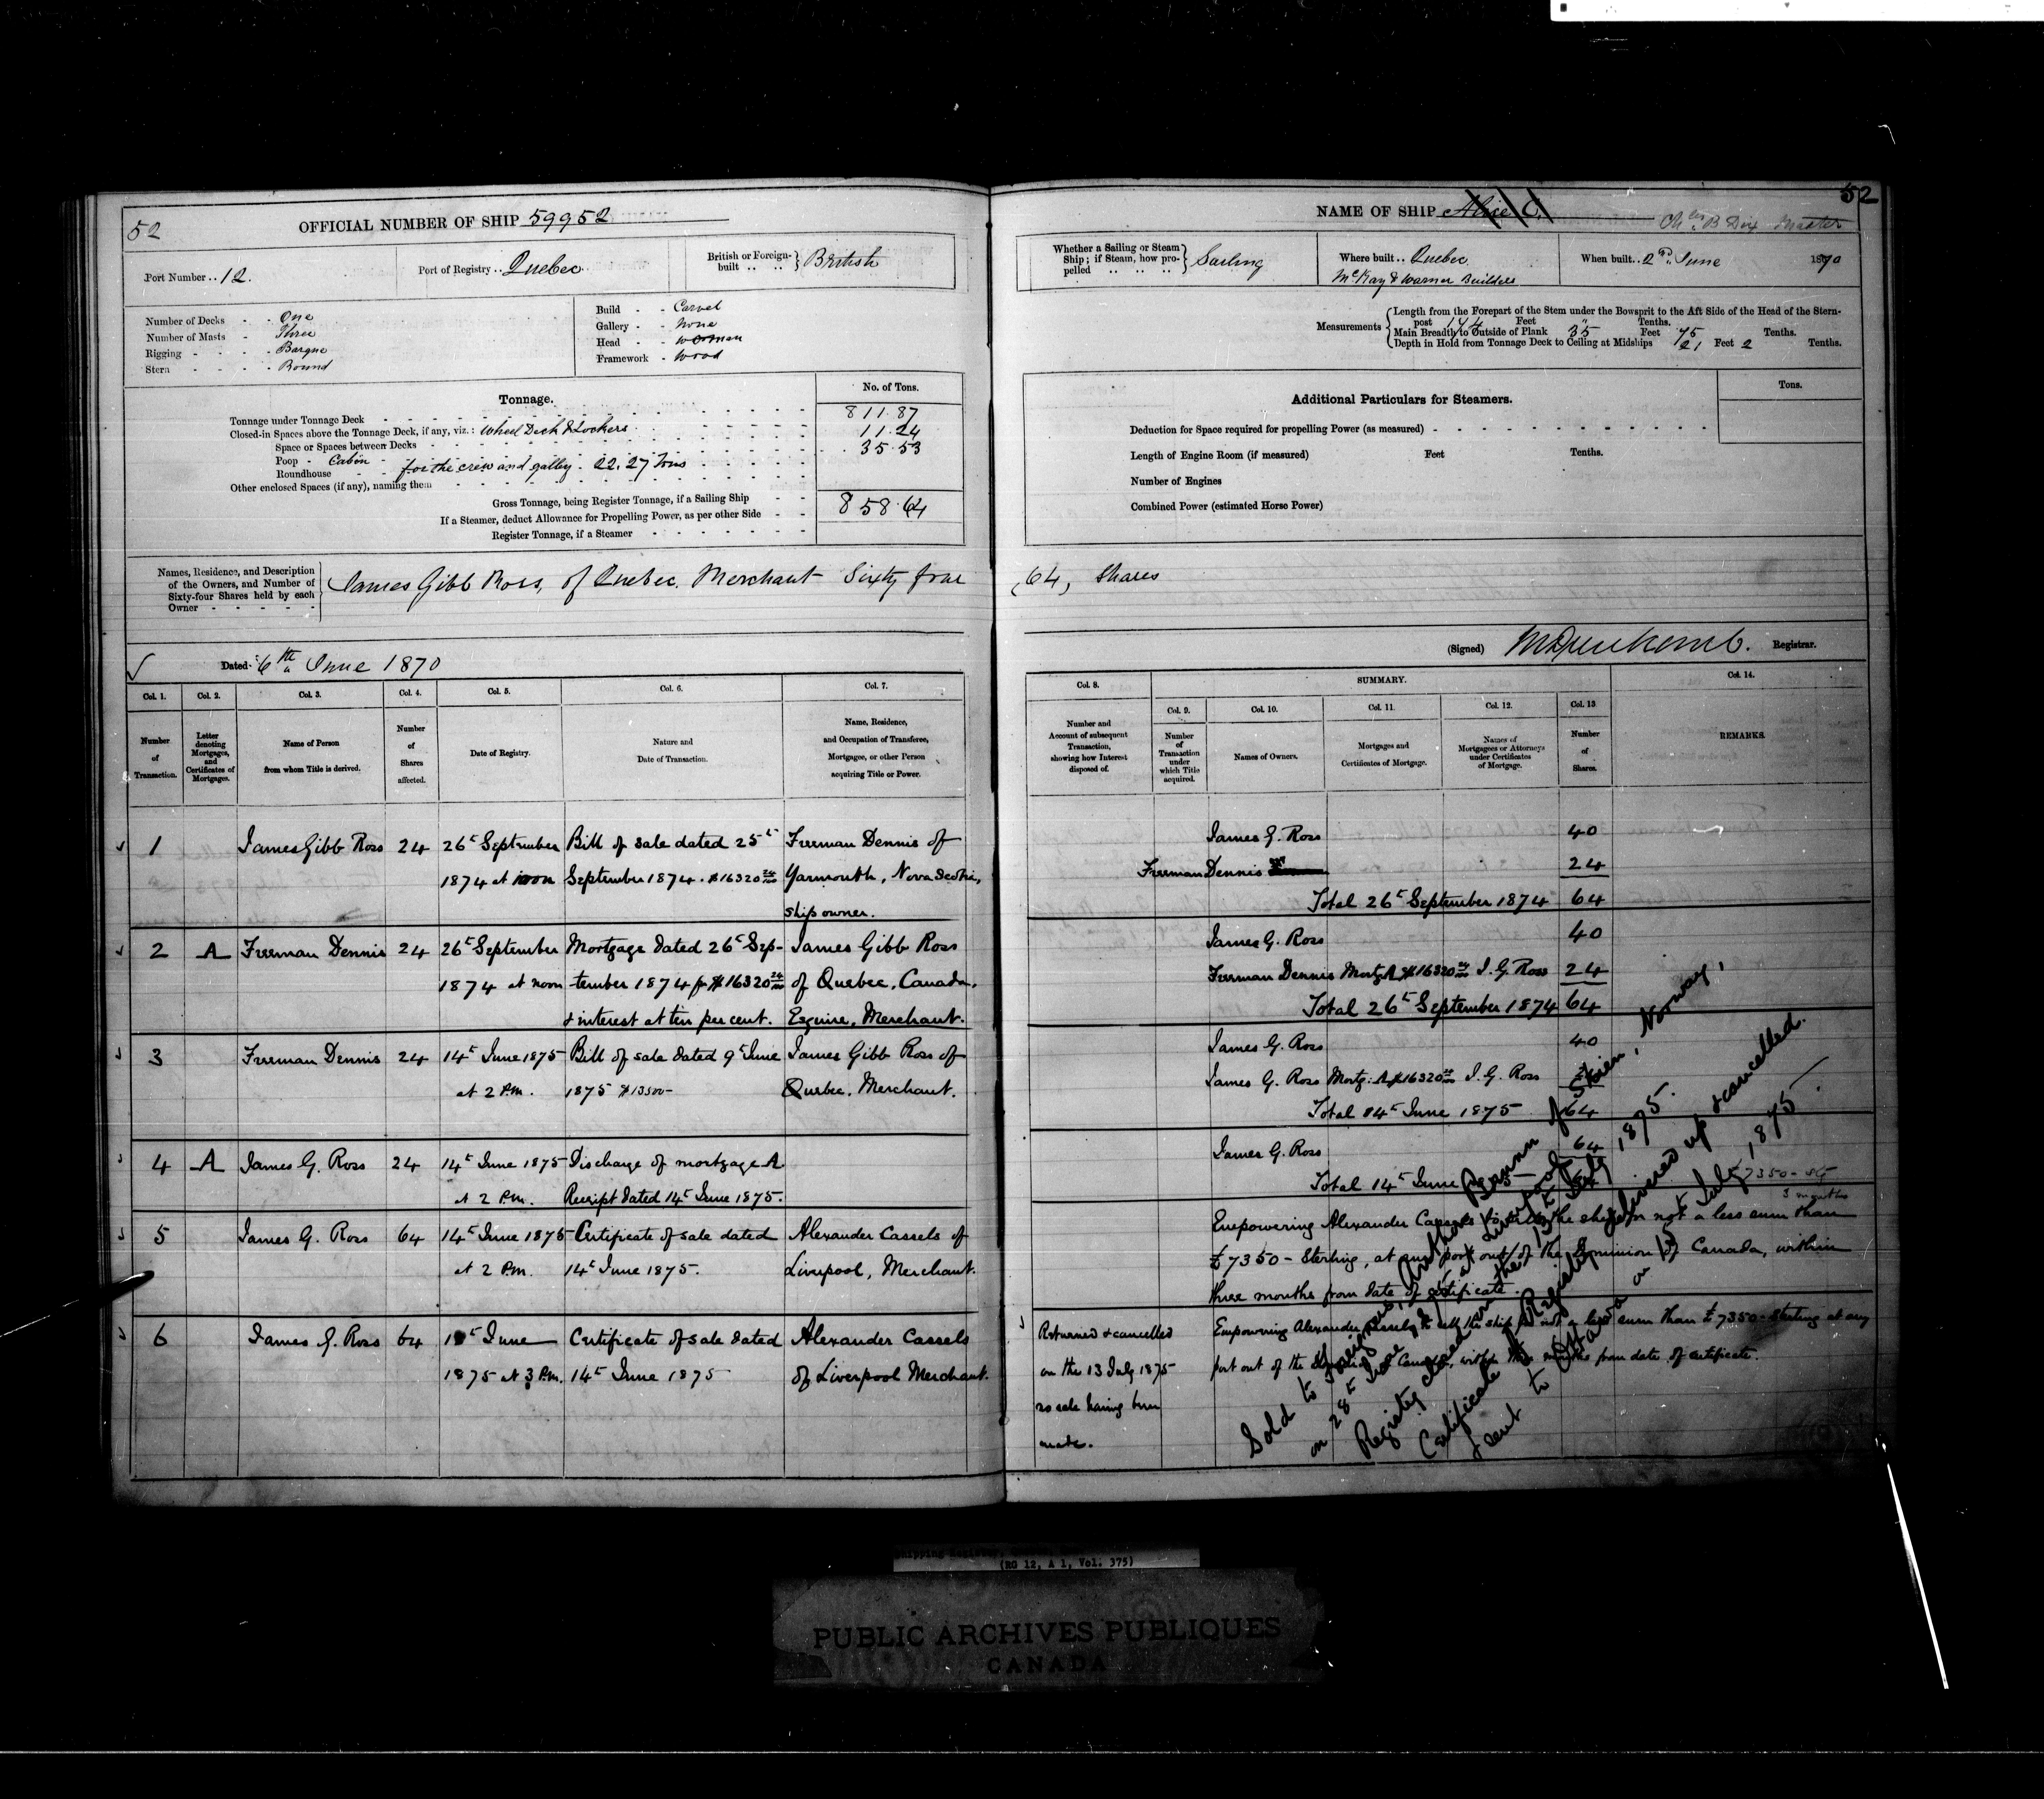 52
OFFICIAL NUMBER OF SHIP 59952
Port Number .. 12.
Port of Registry .. Quebec
British or Foreign-built .. .. British
Number of Decks - - One
Number of Masts - Three
Rigging - - - - Barque
Stern - - - - Round
Build - - Carvel
Gallery - - None
Head - - Woman
Framework - Wood
Tonnage.
No. of Tons.
Tonnage under Tonnage Deck 811.87
Closed-in Spaces above the Tonnage Deck, if any, viz.: Wheel Deck & Lockers 11.24
Space or Spaces between Decks 35.53
Poop - Cabin - for the crew and galley. 22.27 Tons
Roundhouse
Other enclosed Spaces (if any), naming them
Gross Tonnage, being Register Tonnage, if a Sailing Ship 858.64
If a Steamer, deduct Allowance for Propelling Power, as per other Side
Register Tonnage, if a Steamer
Names, Residence, and Description
of the Owners, and Number of
Sixty-four Shares held by each
Owner
James Gibb Ross, of Quebec, Merchant Sixty four
Dated 6th June 1870
Col. 1. Col. 2. Col. 3. Col. 4. Col. 5. Col. 6. Col. 7.
Number of Transaction.
Letter denoting Mortgages, and Certificates of Mortgages.
Name of Person from whom Title is derived.
Number of Shares affected.
Date of Registry.
Nature and Date of Transaction.
Name, Residence, and Occupation of Transferee, Mortgagee, or other Person acquiring Title or Power.
1 James Gibb Ross 24 26t September Bill of sale dated 25t Freeman Dennis of
1874 at noon September 1874. $16320 24/100 Yarmouth, Nova Scotia,
ship owner.
2 A Freeman Dennis 24 26t September Mortgage dated 26t Sep- James Gibb Ross
1874 at noon tember 1874 for $16320 24/100 of Quebec, Canada,
& interest at ten per cent. Esquire, Merchant.
3 Freeman Dennis 24 14t June 1875 Bill of sale dated 9t June James Gibb Ross of
at 2 P.M. 1875 $13500- Quebec, Merchant.
4 A James G. Ross 24 14t June 1875 Discharge of mortgage A
at 2 P.M. Receipt dated 14t June 1875.
5 James G. Ross 64 14t June 1875 Certificate of sale dated Alexander Cassels of
at 2 P.M. 14t June 1875. Liverpool, Merchant.
6 James G. Ross 64 June Certificate of sale dated Alexander Cassels
1875 at 3 P.M. 14t June 1875 of Liverpool Merchant.
52
NAME OF SHIP Alice C.
B Dix Master
Whether a Sailing or Steam Ship; if Steam, how propelled .. .. .. Sailing
Where built .. Quebec
McKay & Warner Builders
When built .. 2nd June 1870
Measurements
Length from the Forepart of the Stem under the Bowsprit to the Aft Side of the Head of the Stern-
post 144 Feet Tenths.
Main Breadth to Outside of Plank 35 Feet 75 Tenths.
Depth in Hold from Tonnage Deck to Ceiling at Midships 21 Feet 2 Tenths.
Additional Particulars for Steamers.
Tons.
Deduction for Space required for propelling Power (as measured)
Length of Engine Room (if measured) Feet Tenths.
Number of Engines
Combined Power (estimated Horse Power)
(64) Shares
(Signed) Registrar.
Col. 8. SUMMARY. Col. 14.
Col. 9. Col. 10. Col. 11. Col. 12. Col. 13
Number and Account of subsequent Transaction, showing how Interest disposed of.
Number of Transaction under which Title acquired.
Names of Owners.
Mortgages and Certificates of Mortgage.
Names of Mortgagees or Attorneys under Certificates of Mortgage.
Number of Shares.
REMARKS.
James G. Ross 40
Freeman Dennis 24
Total 26t September 1874 64
James G. Ross 40
Freeman Dennis Mortg. A $16320 24/100 J. G. Ross 24
Total 26t September 1874 64
James G. Ross 40
James G. Ross Mortg. A $16320 24/100 J. G. Ross 24
Total 14t June 1875 64
James G. Ross 64
Total 14t June 1875 64
£7350-
3 months
Empowering Alexander Cassels to sell the ship for not a less sum than
£7350- Sterling, at any port out of the Dominion of Canada, within
three months from date of certificate.
Returned & cancelled
on the 13 July 1875
no sale having been
made.
Empowering Alexander Cassels to sell the ship for not a less sum than £7350- Sterling at any
port out of the Dominion of Canada, within three months from date of certificate.
Sold to Foreigners, of Skien, Norway,
on 28t June 1875 at Liverpool
Registry closed on the 13t July 1875.
Certificate of Registry delivered up & cancelled
& sent to Ottawa on 13 July, 1875.
(RG 12, A 1, Vol. 375)
PUBLIC ARCHIVES PUBLIQUES
CANADA